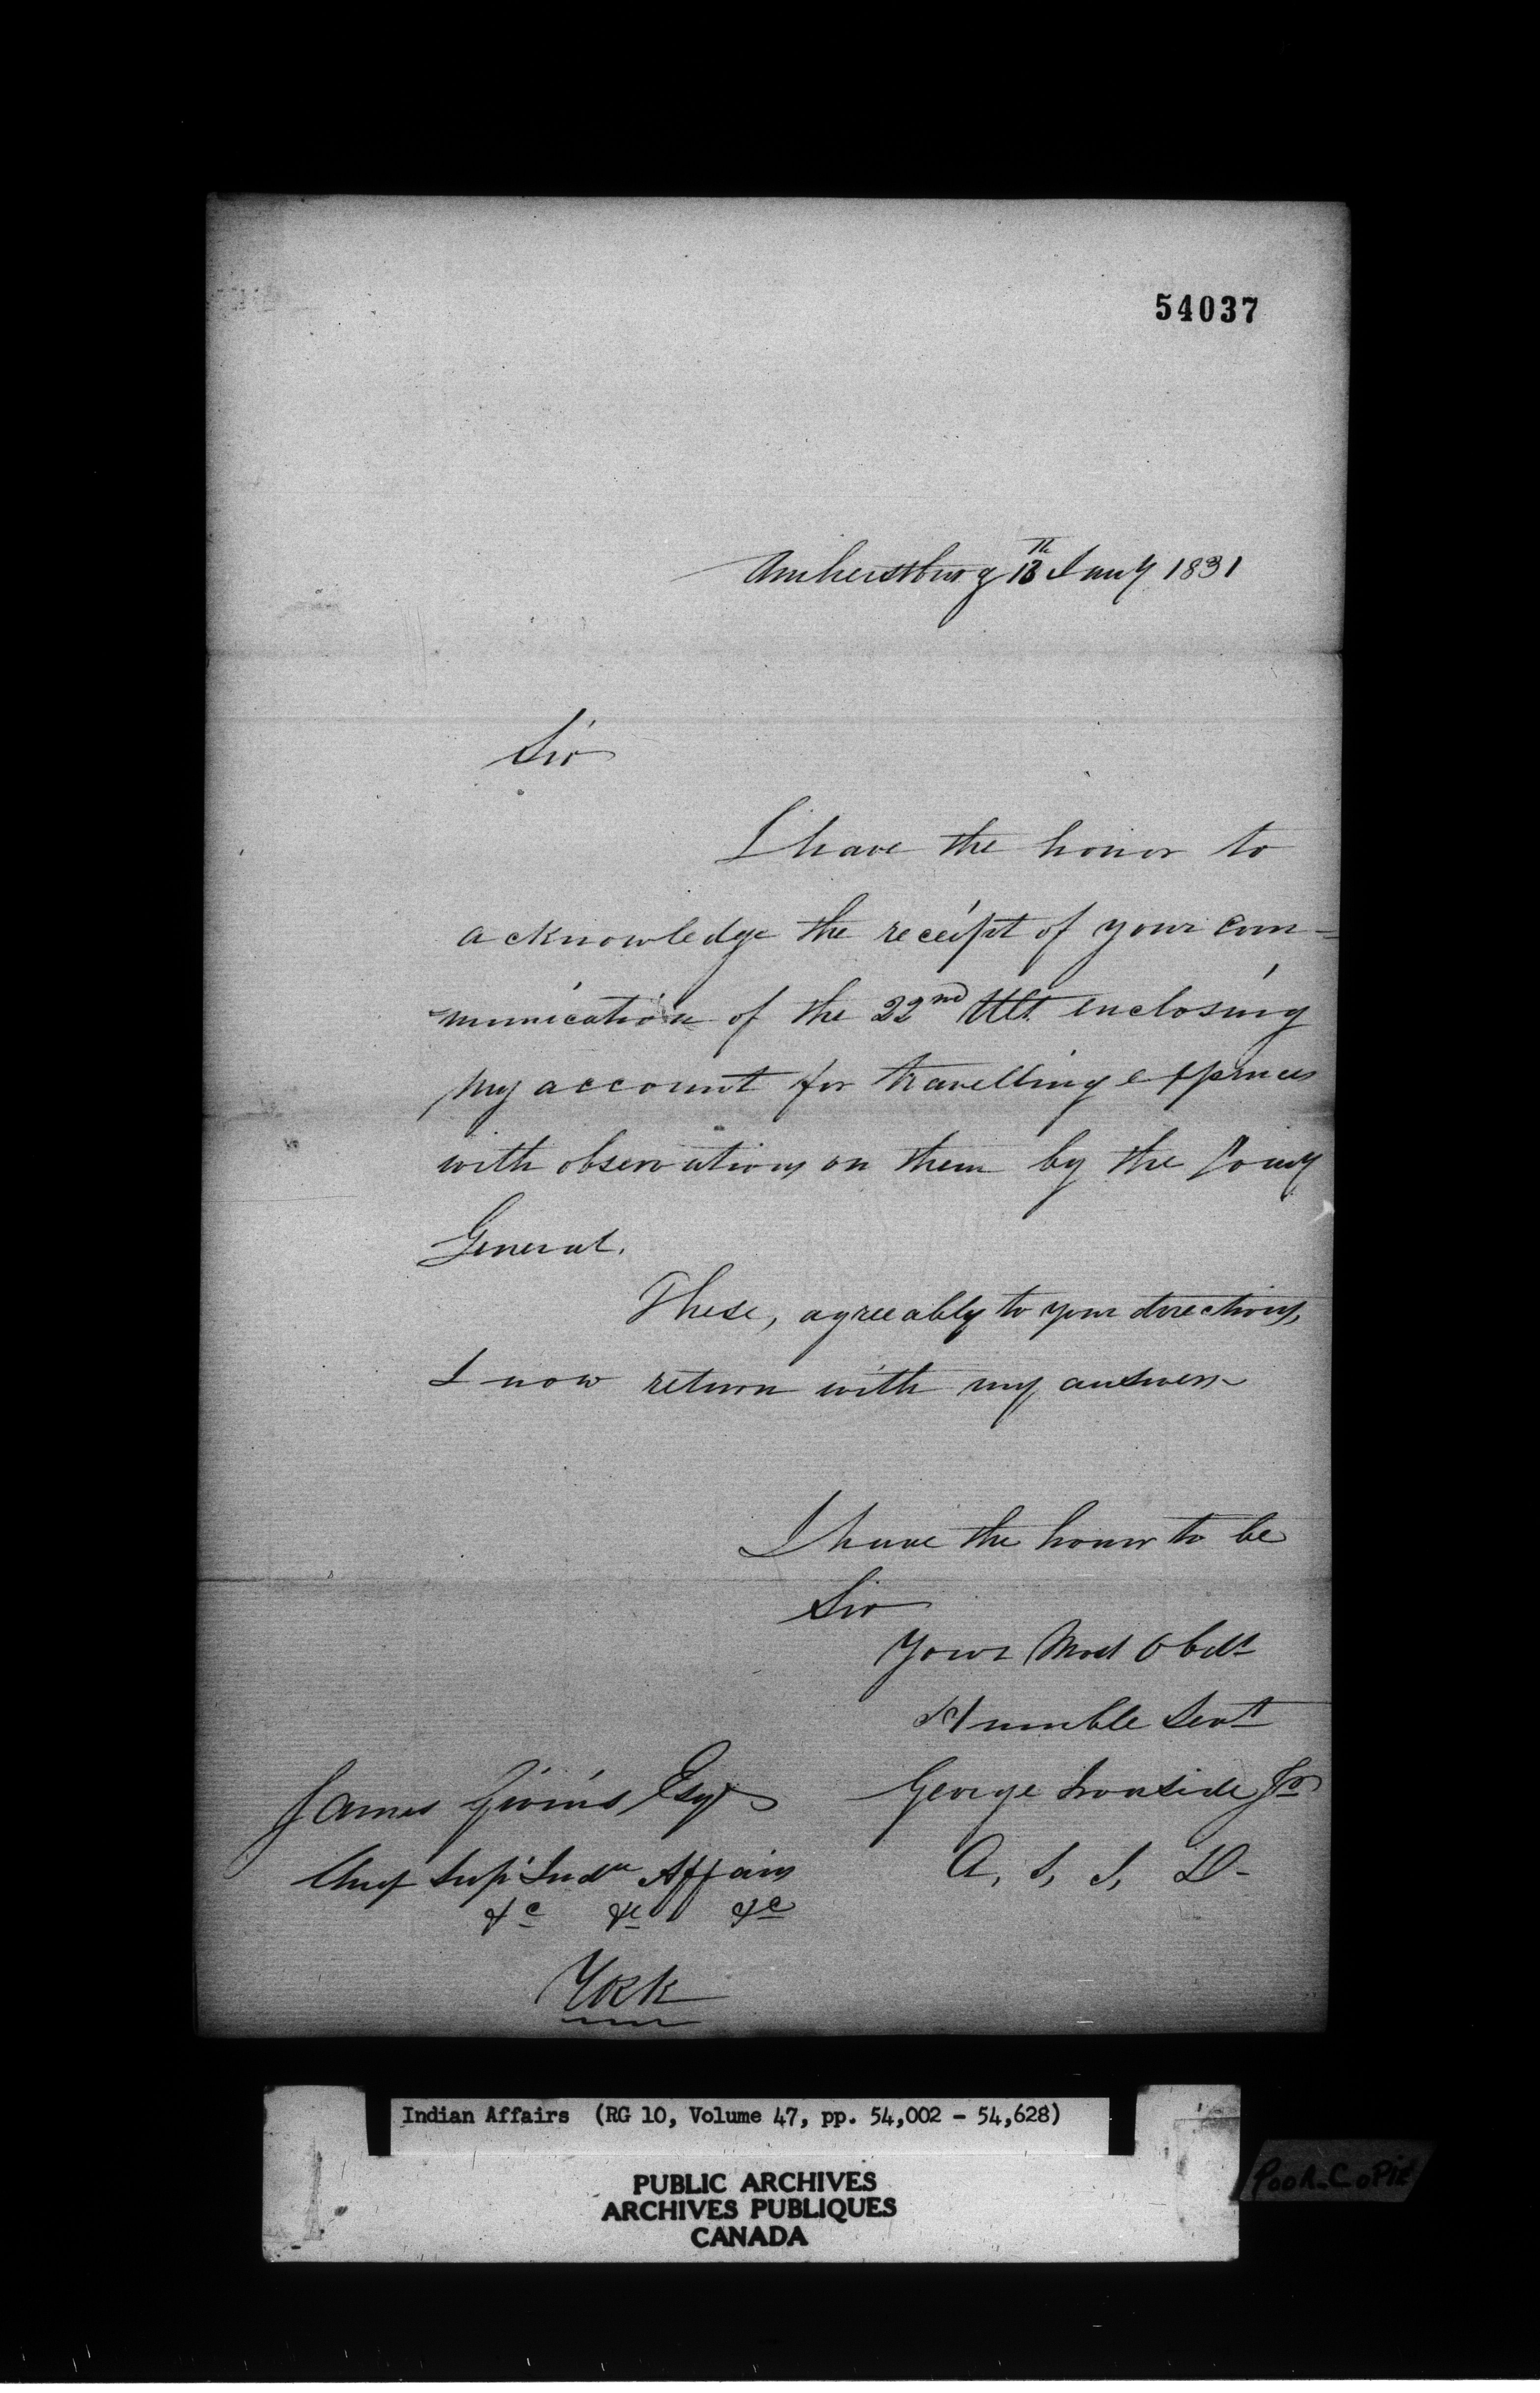 54037
Amherstburg 13th Jany 1831
Sir
I have the honor to
acknowledge the receipt of your com-
munication of the 22nd Ult. enclosing
my account for travelling expences
with observations on them by the Comy
General.
These, agreeably to your directions,
I now return with my answers
I have the honor to be
Sir
Your Most Obdt
Humble Servt
George Ironside Jr
A, S, I, D-
James Givins Esqr
Chief Supt Indn Affairs
&c &c &c
York
Indian Affairs (RG 10, Volume 47, pp. 54,002 - 54,628)
PUBLIC ARCHIVES
ARCHIVES PUBLIQUES
CANADA
Poor Copie